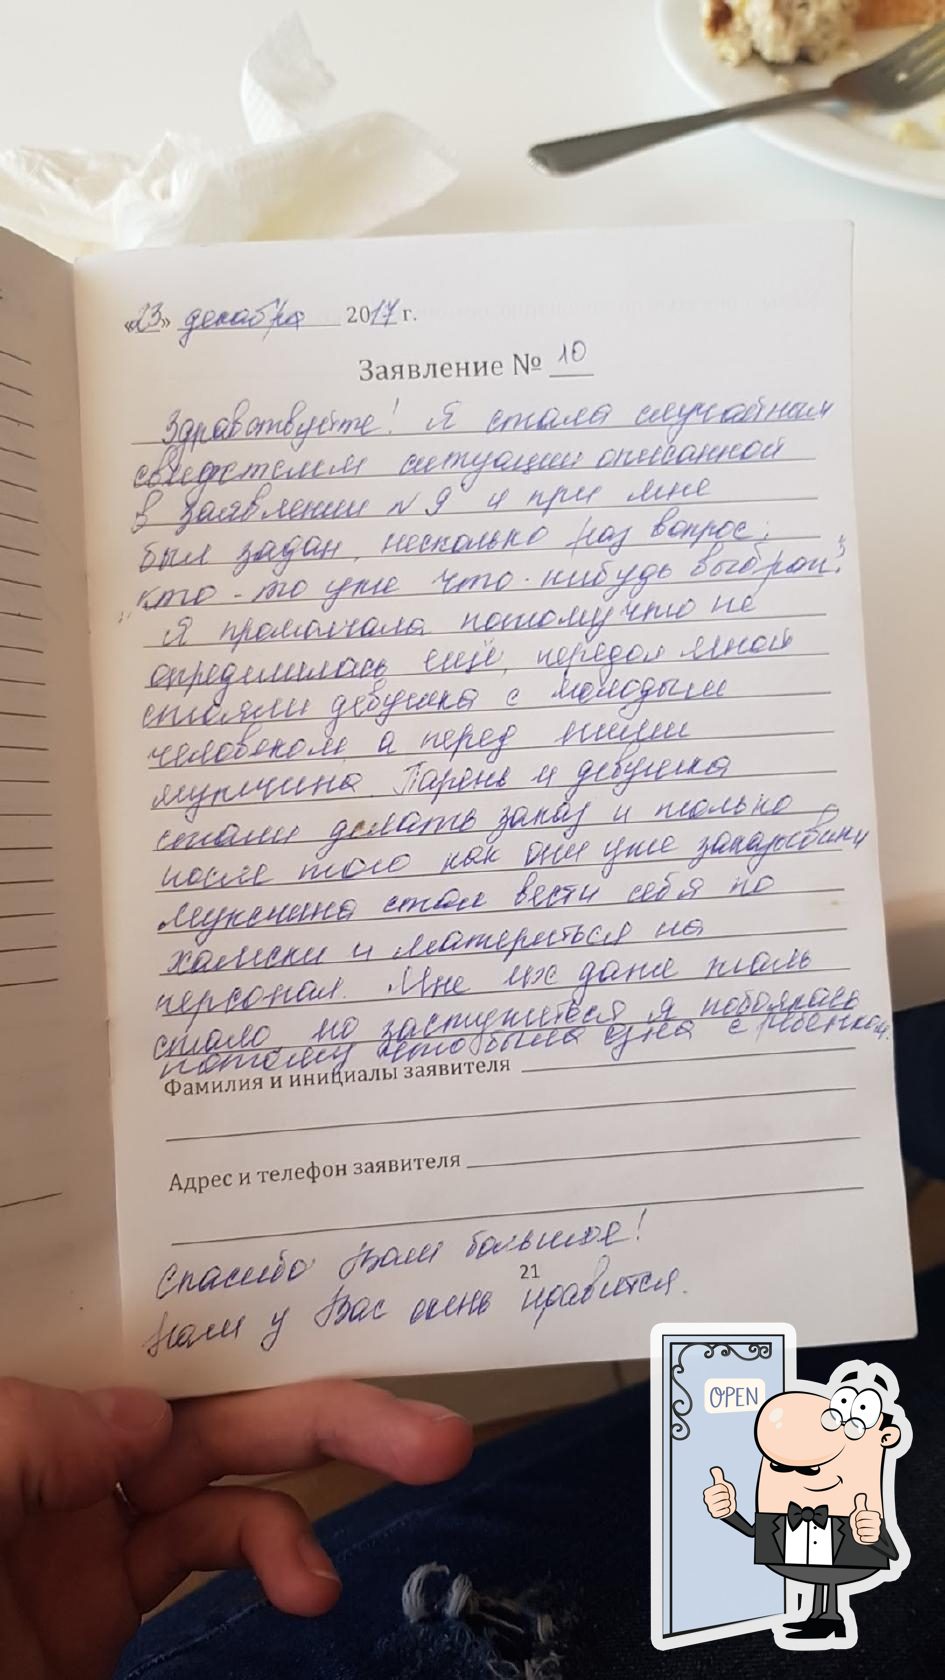 «23» декабря 2017 г.
Заявление № 10
Здравствуйте! Я стала случайным
свидетелем ситуации описанной
в заявлении №9 и при мне
был задан несколько раз вопрос:
"кто-то уже что-нибудь выбрал?"
Я промолчала потому что не
определилась ещё, передо мной
стояли девушка с молодым
человеком, а перед ними
мужчина. Парень и девушка
стали делать заказ и только
после того как они уже заказывали
Мужчина стал вести себя по
хамски и материться на
персонал. Мне их даже жаль
стало но заступиться я побоялась
потому что была одна с ребёнком.
Фамилия и инициалы заявителя
Адрес и телефон заявителя
Спасибо Вам большое!
21
Нам у Вас очень нравится.
OPEN